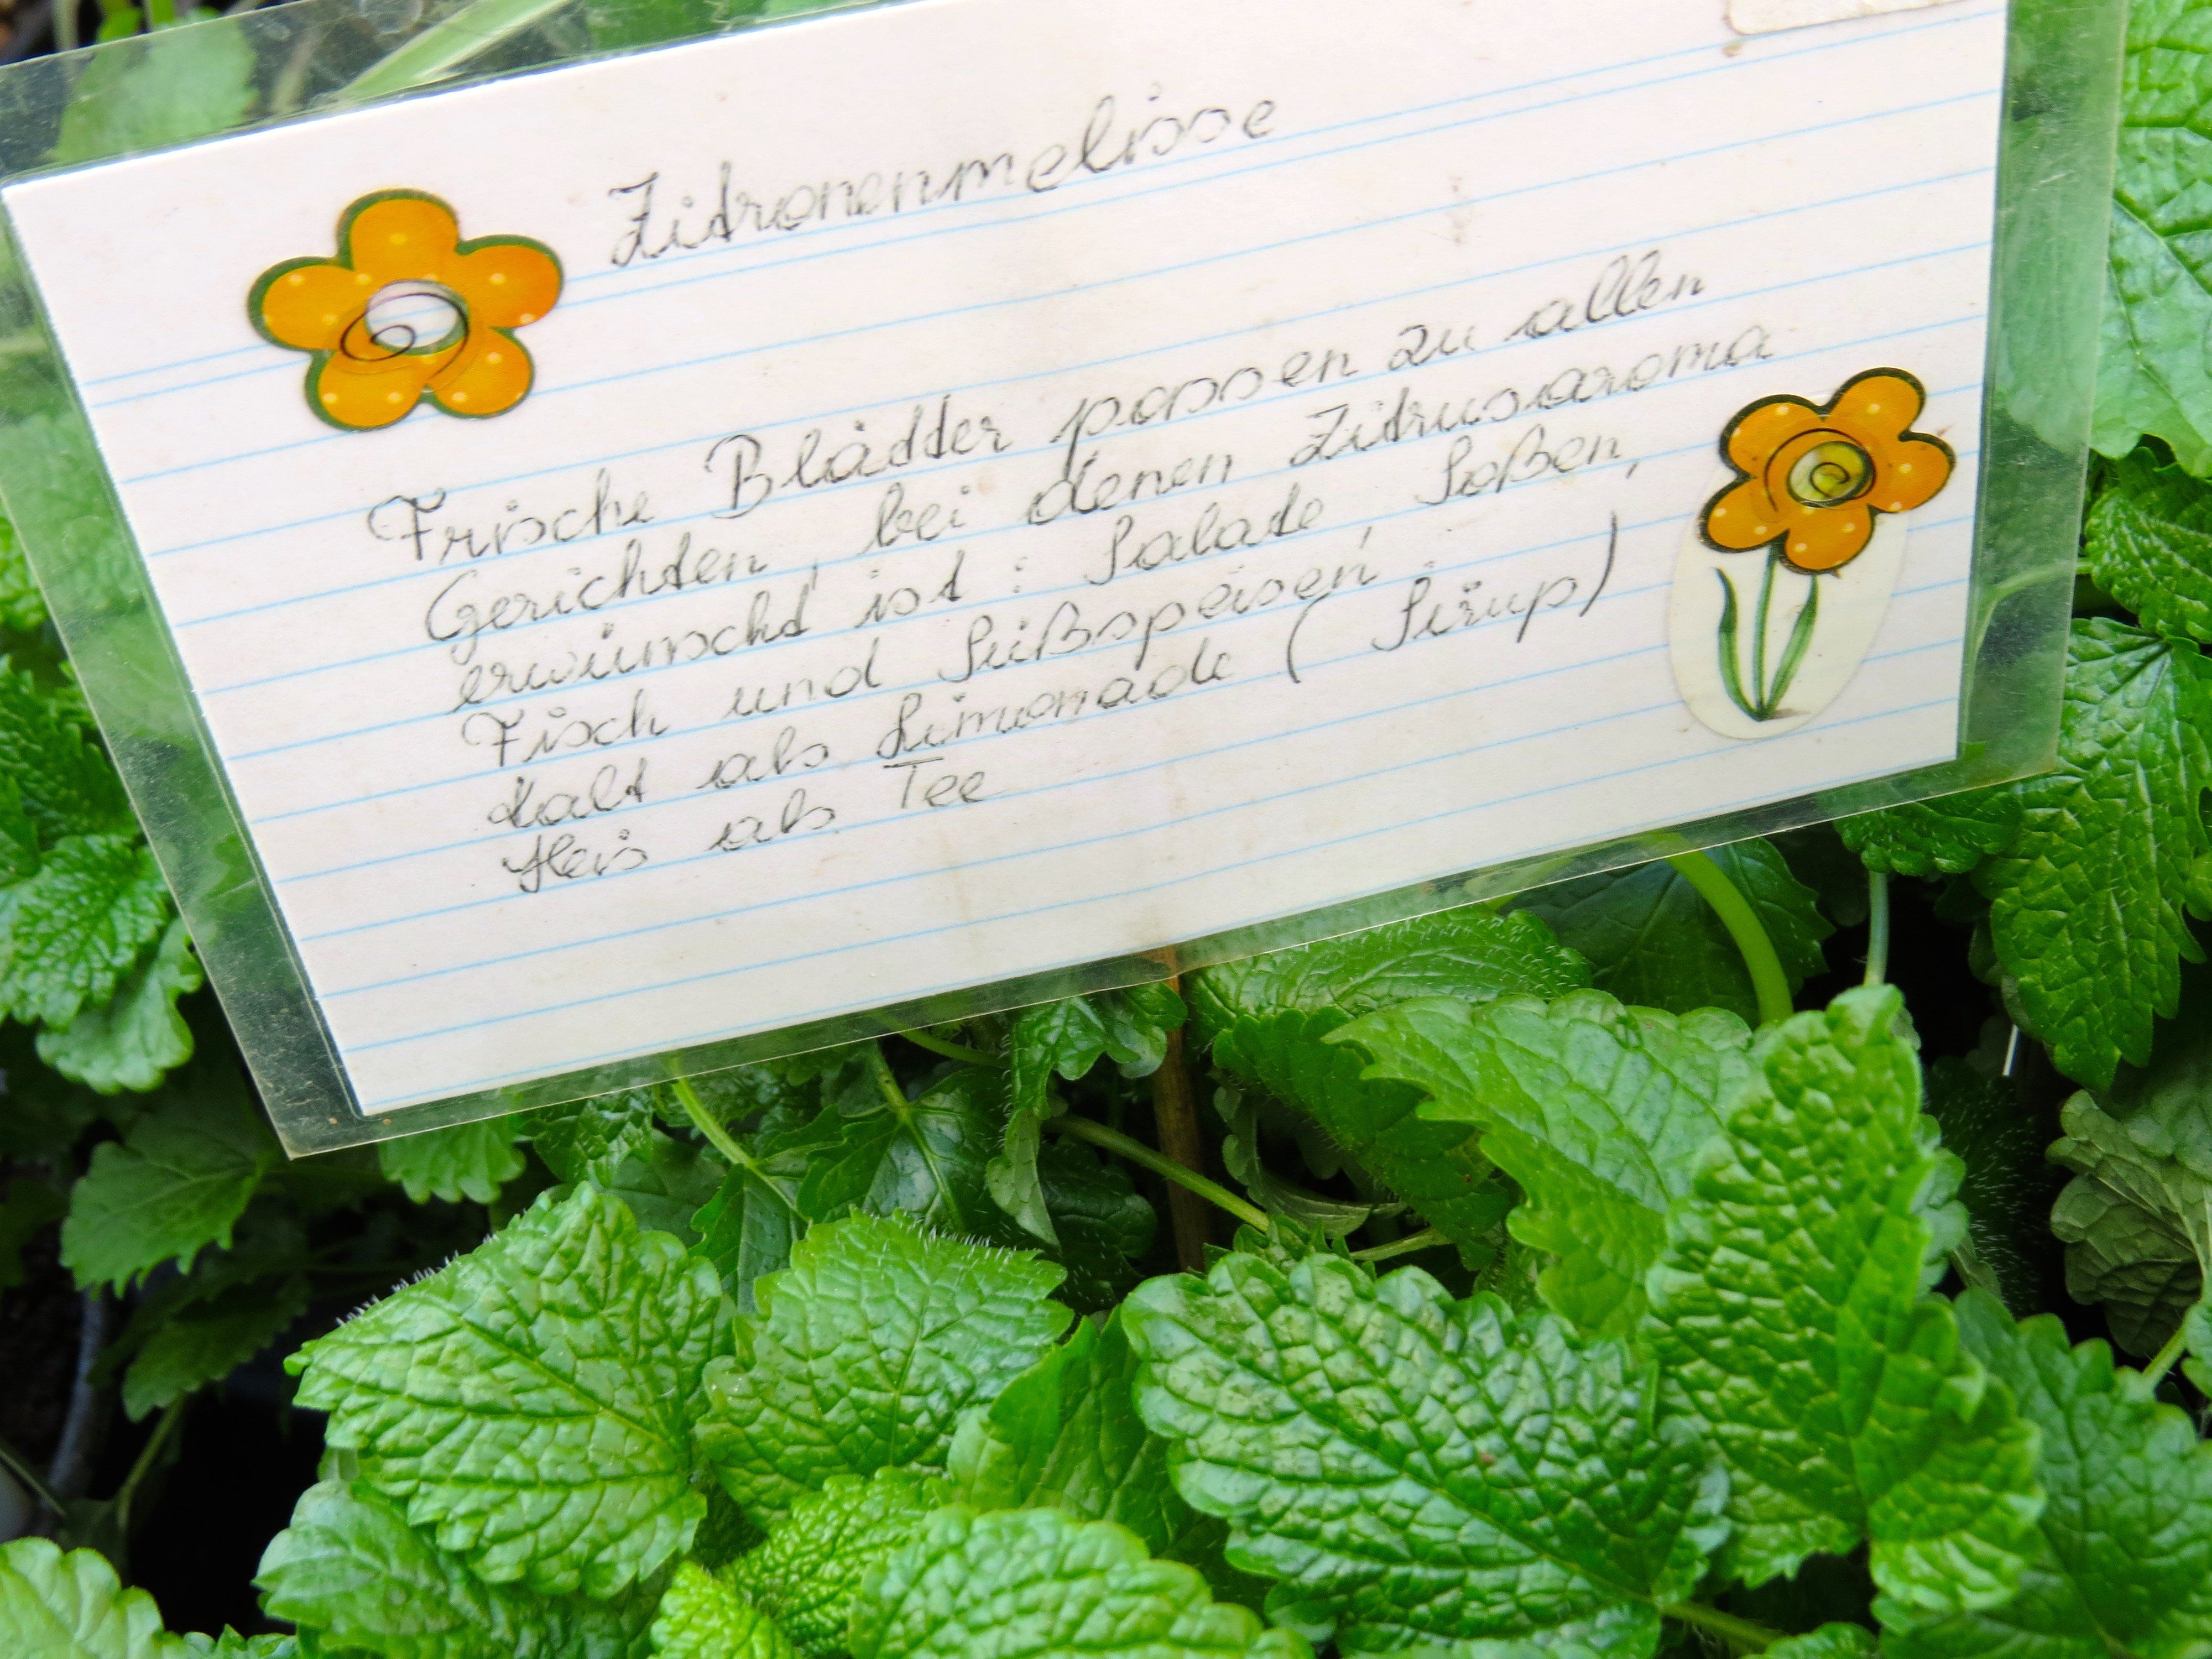 Zitronenmelisse
Frische Blätter passen zu allen
Gerichten, bei denen Zitrusaroma
erwünscht ist: Salate, Soßen,
Fisch und Süßspeisen,
Kalt als Limonade (Sirup)
Heis als Tee